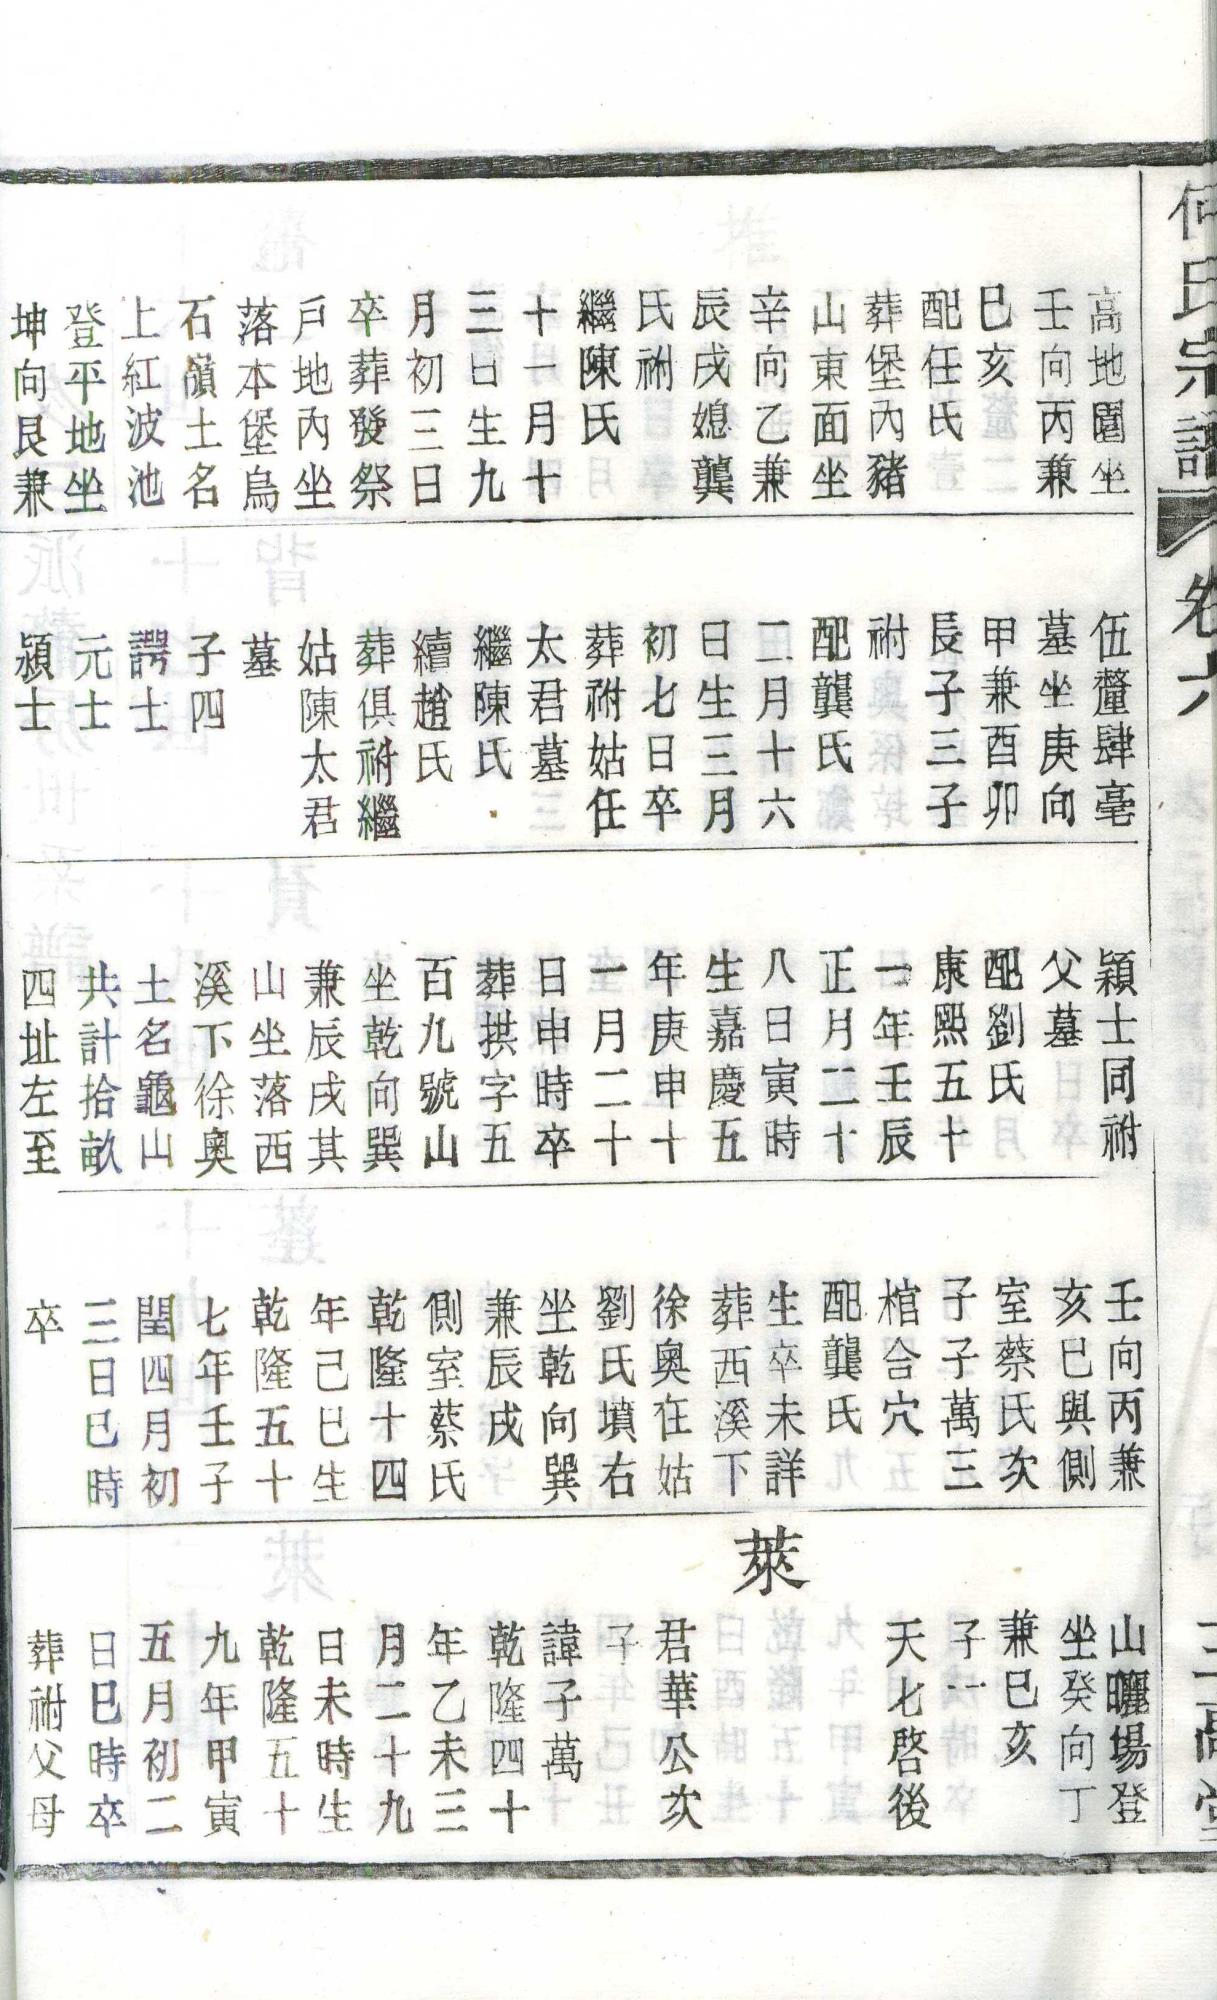 何氏宗譜
卷六
三高堂
高地園坐
壬向丙兼
巳亥
配任氏
葬堡內豬
山東面坐
辛向乙兼
辰戌媳龔
氏祔
繼陳氏
十一月十
三日生九
月初三日
卒葬發祭
戶地內坐
落本堡烏
石嶺土名
上紅波池
登平地坐
坤向艮兼
伍釐肆毫
墓坐庚向
甲兼酉卯
長子三子
祔
配龔氏
二月十六
日生三月
初七日卒
葬祔姑任
太君墓
繼陳氏
續趙氏
葬俱祔繼
姑陳太君
墓
子四
諤士
元士
潁士
穎士同祔
父墓
配劉氏
康熙五十
一年壬辰
正月二十
八日寅時
生嘉慶五
年庚申十
一月二十
日申時卒
葬拱字五
百九號山
坐乾向巽
兼辰戌其
山坐落西
溪下徐奧
土名龜山
共計拾畝
四址左至
壬向丙兼
亥巳與側
室蔡氏次
子子萬三
棺合穴
配龔氏
生卒未詳
葬西溪下
徐奧在姑
劉氏墳右
坐乾向巽
兼辰戌
側室蔡氏
乾隆十四
年己巳生
乾隆五十
七年壬子
閏四月初
三日巳時
卒
山曬場登
坐癸向丁
兼巳亥
子一
天七啓後
萊
君華公次
子
諱子萬
乾隆四十
年乙未三
月二十九
日未時生
乾隆五十
九年甲寅
五月初二
日巳時卒
葬祔父母